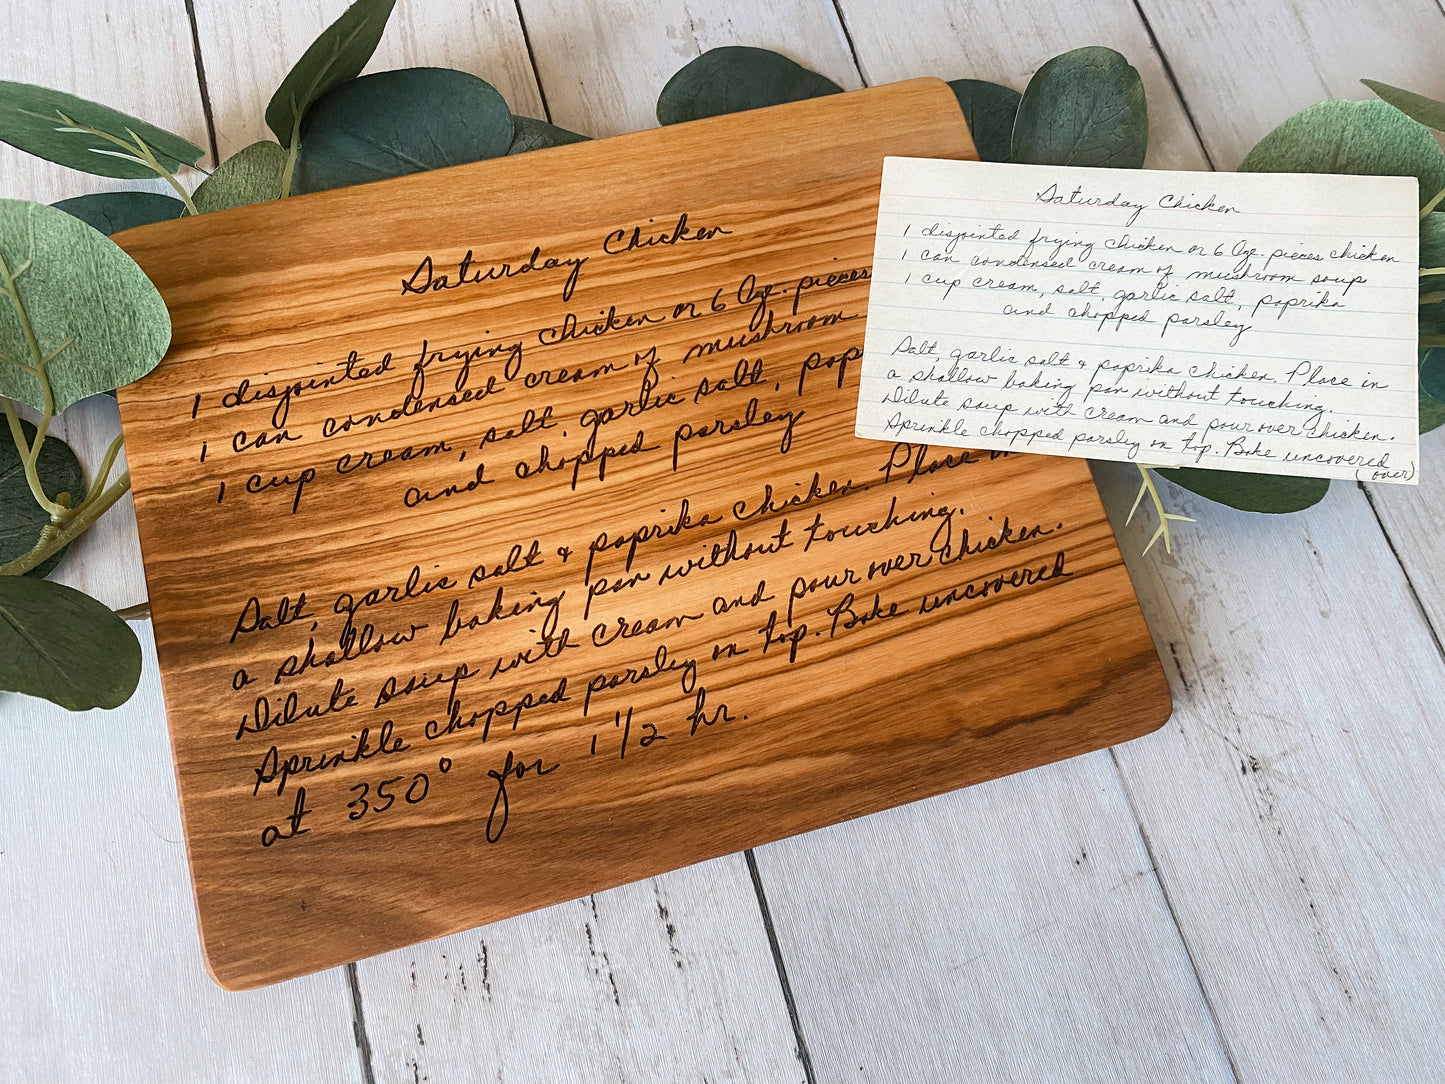 Saturday Chicken
1 disjointed frying chicken or 6 lge. pieces
1 can condensed cream of mushroom
1 cup cream, salt, garlic salt, pap
and chopped parsley
Salt, garlic salt & paprika chicken. Place in
a shallow baking pan without touching.
Dilute soup with cream and pour over chicken.
Sprinkle chopped parsley on top. Bake uncovered
at 350° for 1 1/2 hr.
Saturday Chicken
1 disjointed frying chicken or 6 lge. pieces chicken
1 can condensed cream of mushroom soup
1 cup cream, salt, garlic salt, paprika
and chopped parsley
Salt, garlic salt & paprika chicken. Place in
a shallow baking pan without touching.
Dilute soup with cream and pour over chicken.
Sprinkle chopped parsley on top. Bake uncovered
(over)